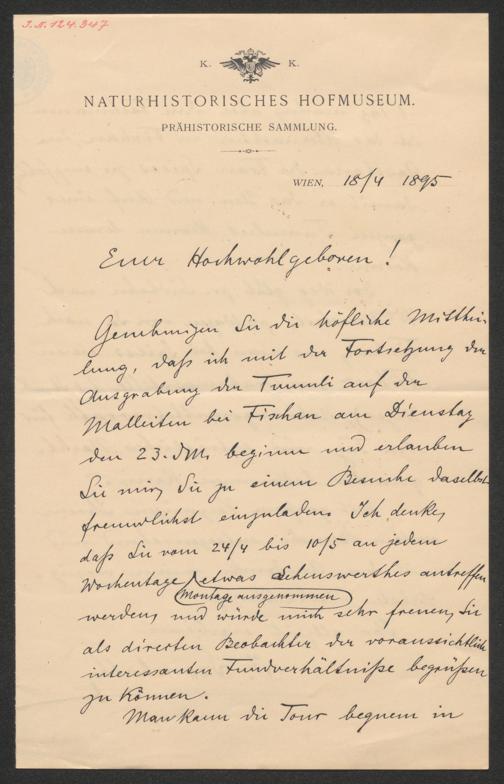 J.N. 124.347
K. K.
NATURHISTORISCHES HOFMUSEUM.
PRÄHISTORISCHE SAMMLUNG.
WIEN, 18/4 1895
Euer Hochwohlgeboren!
Genehmigen Sie die höfliche Mitthei-
lung, daß ich mit der Fortsetzung der
Ausgrabung der Tumuli auf der
Malleiten bei Fischau am Dienstag
den 23. d.M. beginne und erlauben
Sie mir, Sie zu einem Besuche daselbst
freundlichst einzuladen. Ich denke,
daß Sie vom 24/4 bis 10/5 an jedem
Wochentage etwas Sehenswerthes antreffen
(Montage ausgenommen)
werden, und würde mich sehr freuen, Sie
als directen Beobachter der voraussichtlich
interessanten Fundverhältniße begrüßen
zu können.
Man kann die Tour bequem in